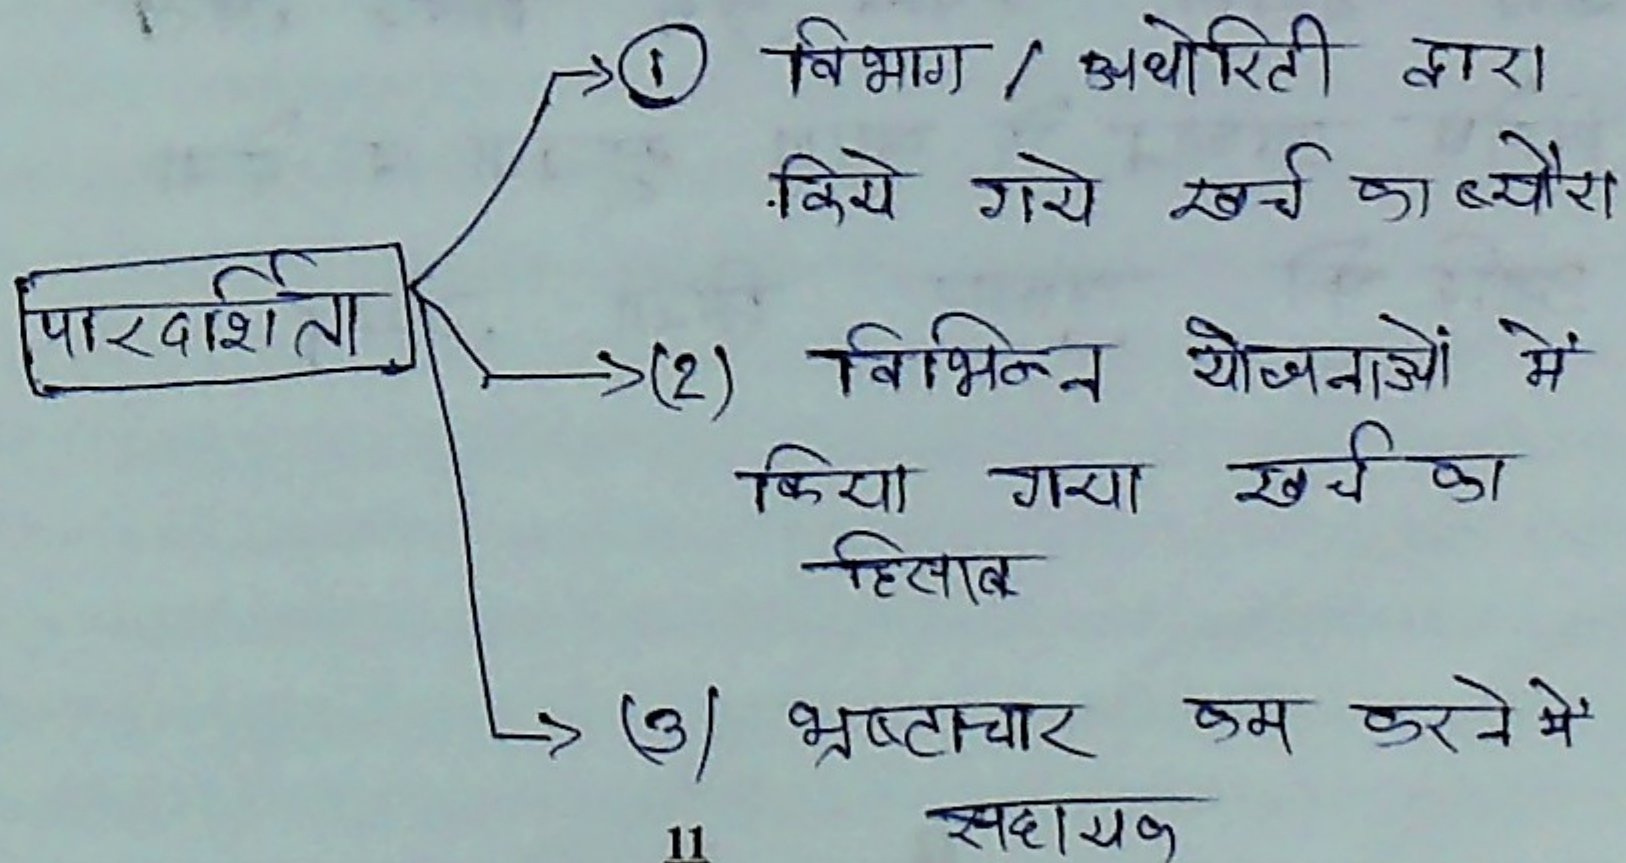 ① विभाग / अथोरिटी द्वारा
किये गये खर्च का ब्यौरा
पारदर्शिता
(2) विभिन्न योजनाओं में
किया गया खर्च का
हिसाब
(3) भ्रष्टाचार कम करने में
सहायक
11